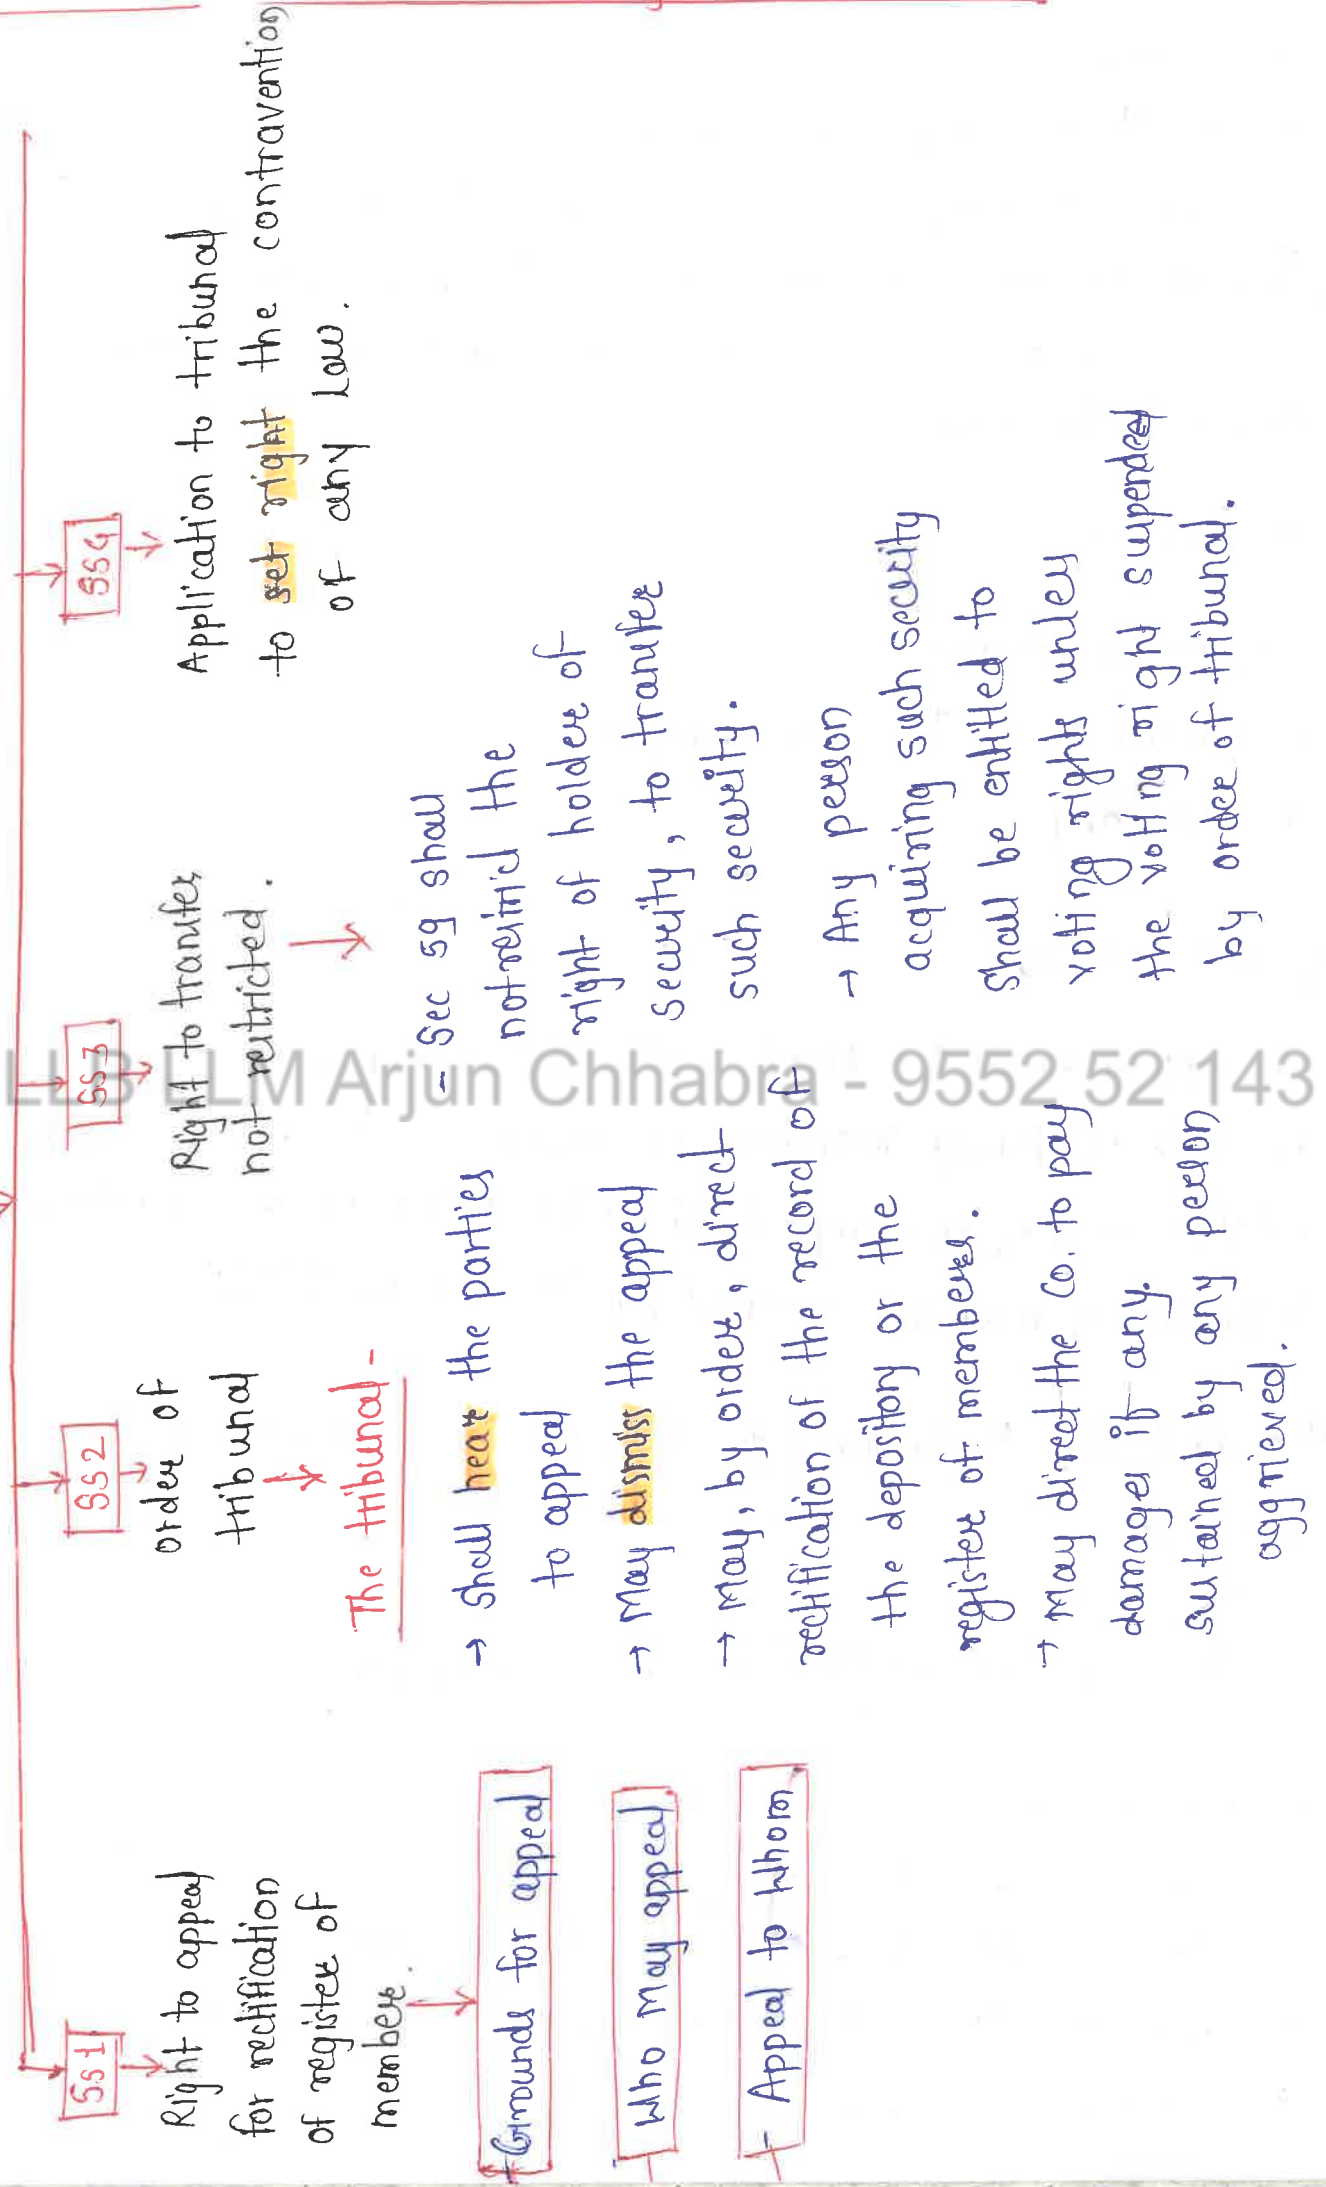 SS1
Right to appeal
for rectification
of register of
member.
Grounds for appeal
Who May appeal
- Appeal to Whom
SS2
order of
tribunal
The tribunal -
→ Shall hear the parties
to appeal
→ May dismiss the appeal
→ May, by order, direct
rectification of the record of
the depository or the
register of members.
→ May direct the Co. to pay
damages if any.
sustained by any person
aggrieved.
SS3
Right to transfer
not restricted.
- Sec 59 shall
not restrict the
right of holder of
security, to transfer
such security.
→ Any person
acquiring such security
Shall be entitled to
voting rights unless
the voting right suspended
by order of tribunal.
SS4
Application to tribunal
to set right the contravention
of any Law.
LLB LLM Arjun Chhabra - 9552 52 143